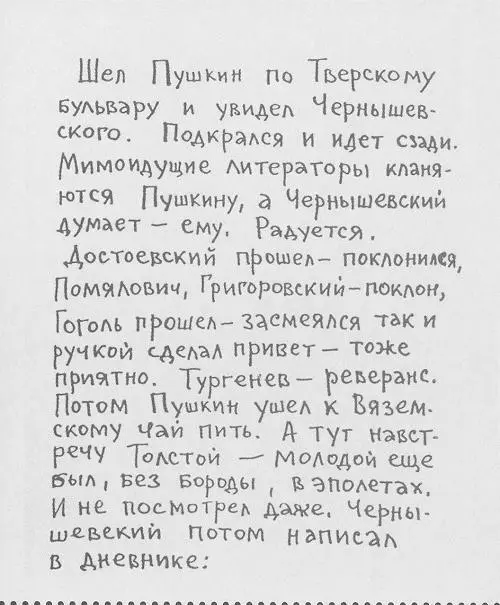 Шел Пушкин по Тверскому
бульвару и увидел Чернышев-
ского. Подкрался и идет сзади.
Мимоидущие литераторы кланя-
ются Пушкину, а Чернышевский
думает – ему. Радуется.
Достоевский прошел – поклонился,
Помялович, Григоровский – поклон,
Гоголь прошел – засмеялся так и
ручкой сделал привет – тоже
приятно. Тургенев – реверанс.
Потом Пушкин ушел к Вязем-
скому чай пить. А тут навст-
речу Толстой – молодой еще
был, без бороды, в эполетах.
И не посмотрел даже. Черны-
шевский потом написал
в дневнике: